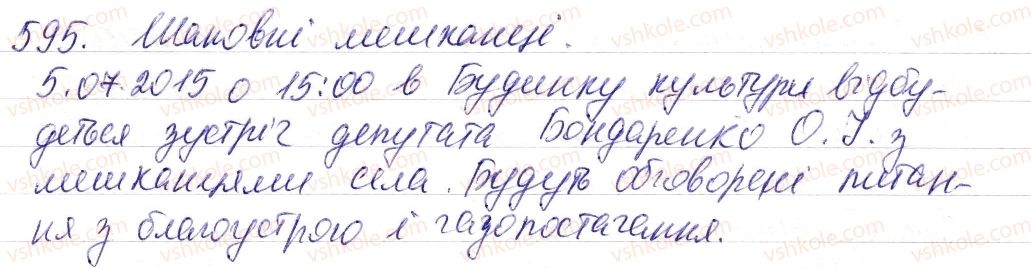 595. Шановні мешканці.
5.07.2015 о 15:00 в Будинку культури відбу-
деться зустріч депутата Бондаренко О.І. з
мешканцями села. Будуть обговорені питан-
ня з благоустрою і газопостачання.